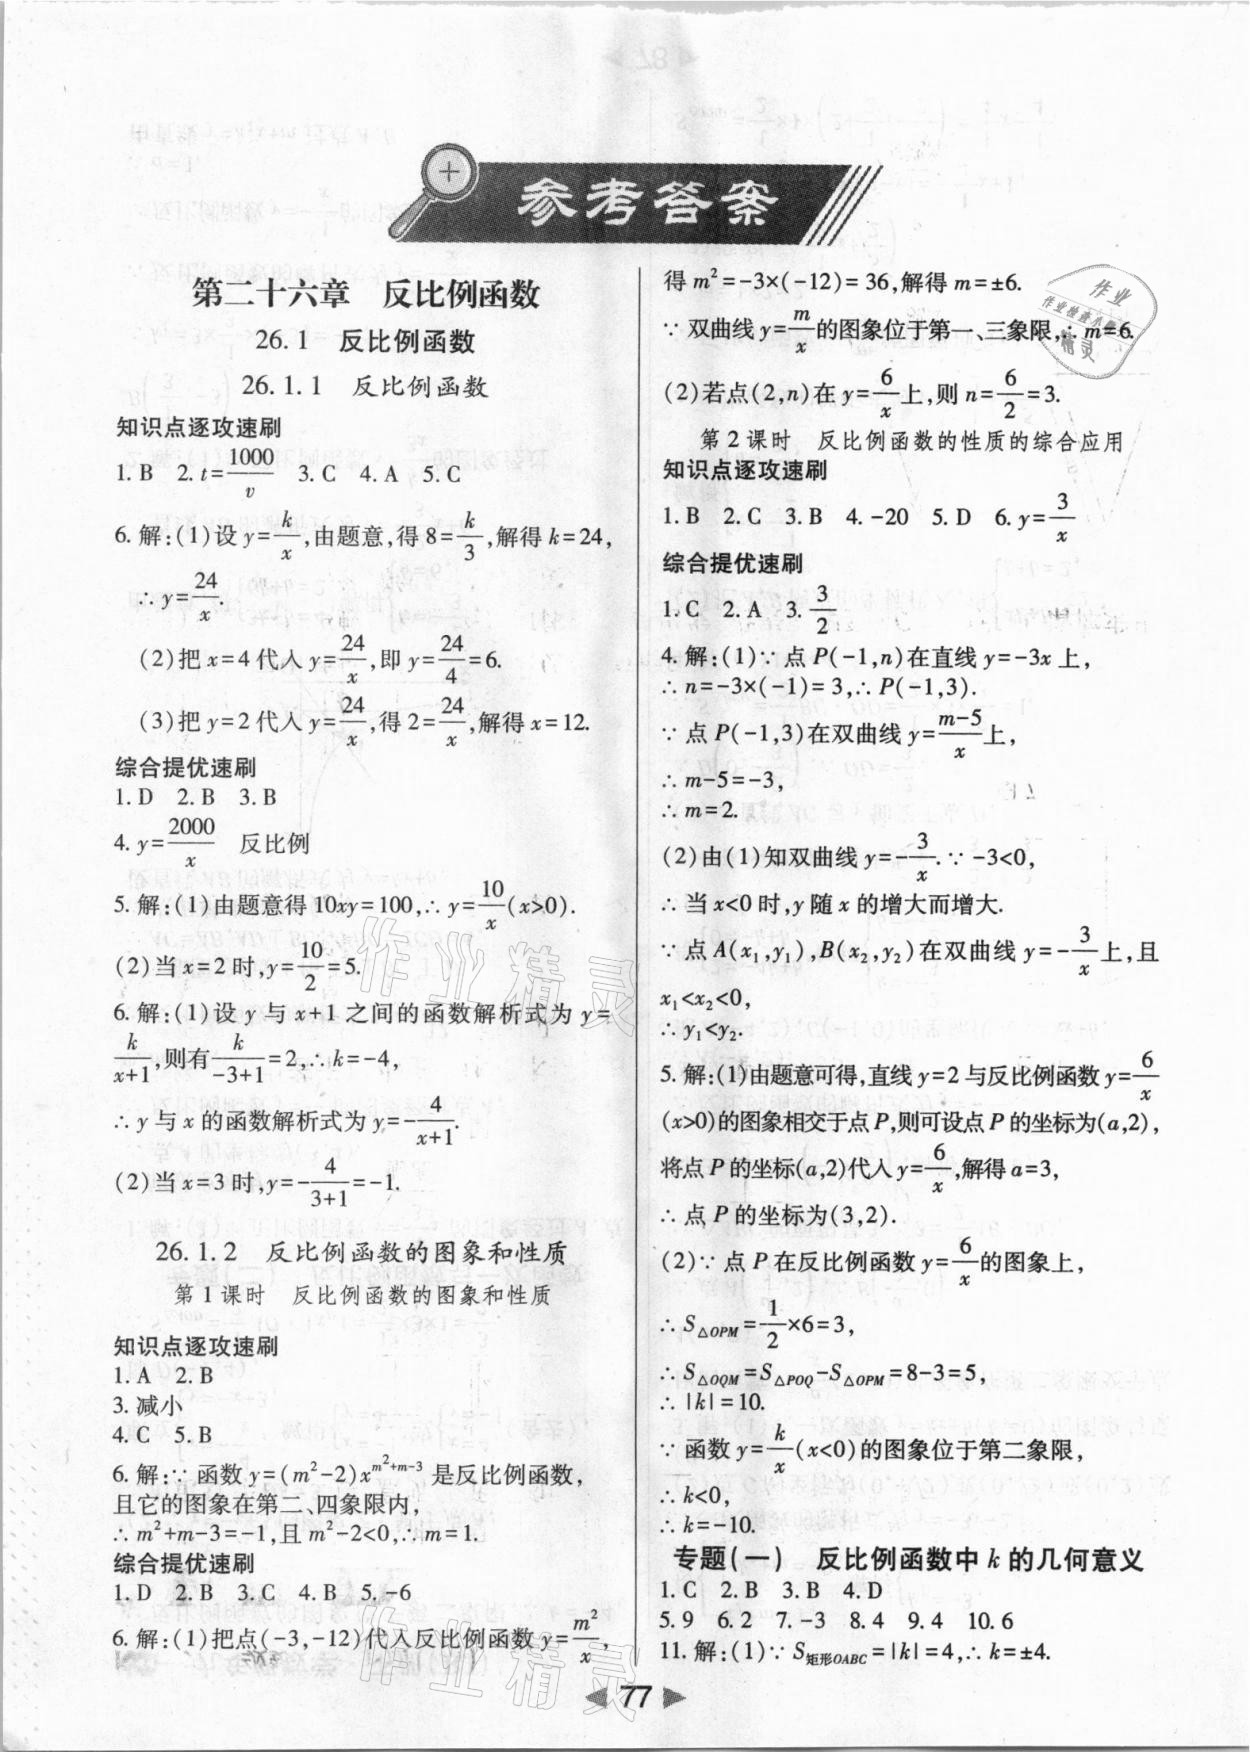 参考答案
第二十六章 反比例函数
26.1 反比例函数
26.1.1 反比例函数
知识点逐攻速刷
1. B 2. t=1000/v 3. C 4. A 5. C
6. 解:(1)设 y=k/x,由题意,得 8=k/3,解得 k=24,
∴ y=24/x.
(2)把 x=4 代入 y=24/x,即 y=24/4=6.
(3)把 y=2 代入 y=24/x,得 2=24/x,解得 x=12.
综合提优速刷
1. D 2. B 3. B
4. y=2000/x 反比例
5. 解:(1)由题意得 10xy=100,∴ y=10/x(x>0).
(2)当 x=2 时,y=10/2=5.
6. 解:(1)设 y 与 x+1 之间的函数解析式为 y=
k/(x+1),则有k/(-3+1)=2,∴ k=-4,
∴ y 与 x 的函数解析式为 y=-4/(x+1).
(2)当 x=3 时,y=-4/(3+1)=-1.
26.1.2 反比例函数的图象和性质
第 1 课时 反比例函数的图象和性质
知识点逐攻速刷
1. A 2. B
3. 减小
4. C 5. B
6. 解:∵ 函数 y=(m²-2)x^(m²+m-3) 是反比例函数,
且它的图象在第二、四象限内,
∴ m²+m-3=-1,且 m²-2<0,∴ m=1.
综合提优速刷
1. D 2. B 3. C 4. B 5. -6
6. 解:(1)把点(-3,-12)代入反比例函数 y=m²/x,
得 m²=-3×(-12)=36,解得 m=±6.
∵ 双曲线 y=m/x的图象位于第一、三象限,∴ m=6.
(2)若点(2,n)在 y=6/x上,则 n=6/2=3.
第 2 课时 反比例函数的性质的综合应用
知识点逐攻速刷
1. B 2. C 3. B 4. -20 5. D 6. y=3/x
综合提优速刷
1. C 2. A 3. 3/2
4. 解:(1)∵ 点 P(-1,n)在直线 y=-3x 上,
∴ n=-3×(-1)=3,∴ P(-1,3).
∵ 点 P(-1,3)在双曲线 y=(m-5)/x上,
∴ m-5=-3,
∴ m=2.
(2)由(1)知双曲线 y=-3/x.∵ -3<0,
∴ 当 x<0 时,y 随 x 的增大而增大.
∵ 点 A(x₁,y₁),B(x₂,y₂)在双曲线 y=-3/x上,且
x₁<x₂<0,
∴ y₁<y₂.
5. 解:(1)由题意可得,直线 y=2 与反比例函数 y=6/x
(x>0)的图象相交于点 P,则可设点 P 的坐标为(a,2),
将点 P 的坐标(a,2)代入 y=6/x,解得 a=3,
∴ 点 P 的坐标为(3,2).
(2)∵ 点 P 在反比例函数 y=6/x的图象上,
∴ S△OPM=1/2×6=3,
∴ S△OQM=S△POQ-S△OPM=8-3=5,
∴ |k|=10.
∵ 函数 y=k/x(x<0)的图象位于第二象限,
∴ k<0,
∴ k=-10.
专题(一) 反比例函数中 k 的几何意义
1. C 2. B 3. B 4. D
5. 9 6. 2 7. -3 8. 4 9. 4 10. 6
11. 解:(1)∵ S矩形OABC=|k|=4,∴ k=±4.
77
作业
作业检查小
精灵
作业精灵
作业精灵